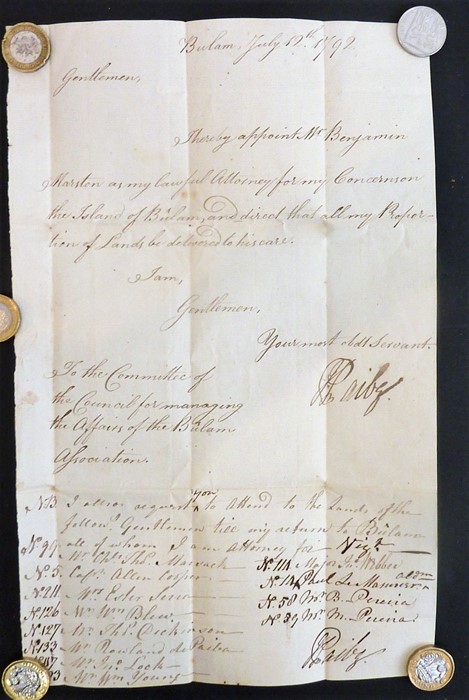 Bulam, July 12th. 1792
Gentlemen,
I hereby appoint Mr Benjamin
Marston as my lawful Attorney for my Concerns on
the Island of Bulam, and direct that all my Propor-
tion of Lands be delivered to his care.
I am,
Gentlemen,
Your most obdt Servant.
To the Committee of
the Council for managing
the Affairs of the Bulam
Association.
Paiba
I also request you to Attend to the Lands of the
follow. Gentlemen till my return to Bulam
all of whom I am Attorney for Vizt
Thos.
No. 5 Capt. Allen Cooper
No. 211 Mrs Ester
No. 126 Mr Wm Blew
No. 127 Mr Thos. Dickinson
Mr Rowland de Paiba
Mr Jos. Lock
Mr Wm Young
No. 114 Major Jno. Webber
Paul Le Mesurier
No. 58 Mr B. Pereira
No. 59 Mr M. Pereira
Paiba